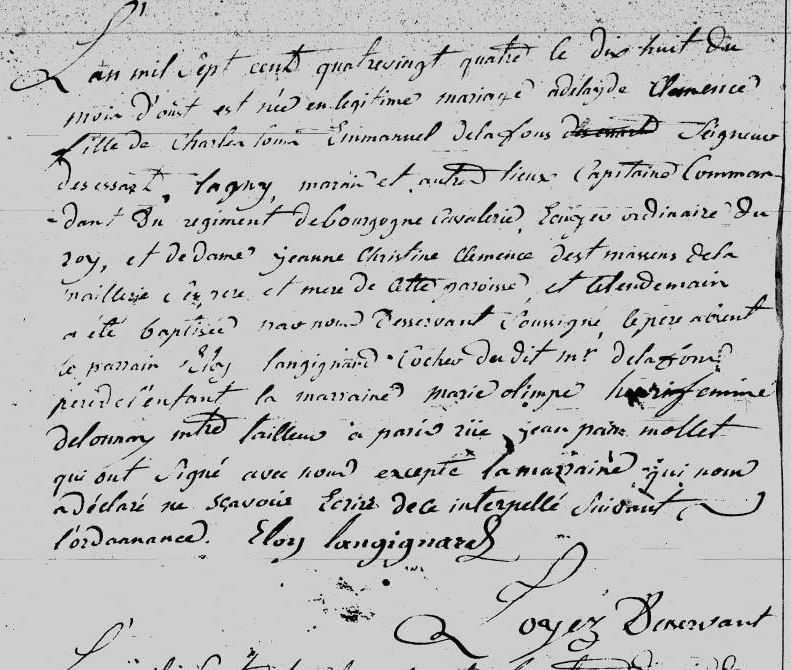 L'an mil Sept cent quatrevingt quatre le dix huit du
mois d'oust est née en legitime mariage adelayde Clemence
fille de Charles Emmanuel delafons Seigneur
des essart, lagny, marain et autre lieux Capitaine Comman-
-dant du regiment de bourgogne Cavalerie, Ecuyer ordinaire du
roy, et de dame jeanne Christine Clemence dela
naillerie pere et mere de cette paroisse, et le lendemain
a été baptisée par nous Desservant Soussigné, le pere absent
le parrain Eloy langignard Cocher du dit mr delafons
pere de l'enfant la marraine marie olimpe femme
delounay mtre tailleur a paris rue jean pain mollet
qui ont Signé avec nous excepté la marraine qui nous
a déclaré ne sçavoir Ecrire de ce interpellé Suivant
l'ordonnance. Eloy langignard
Loyez Desservant